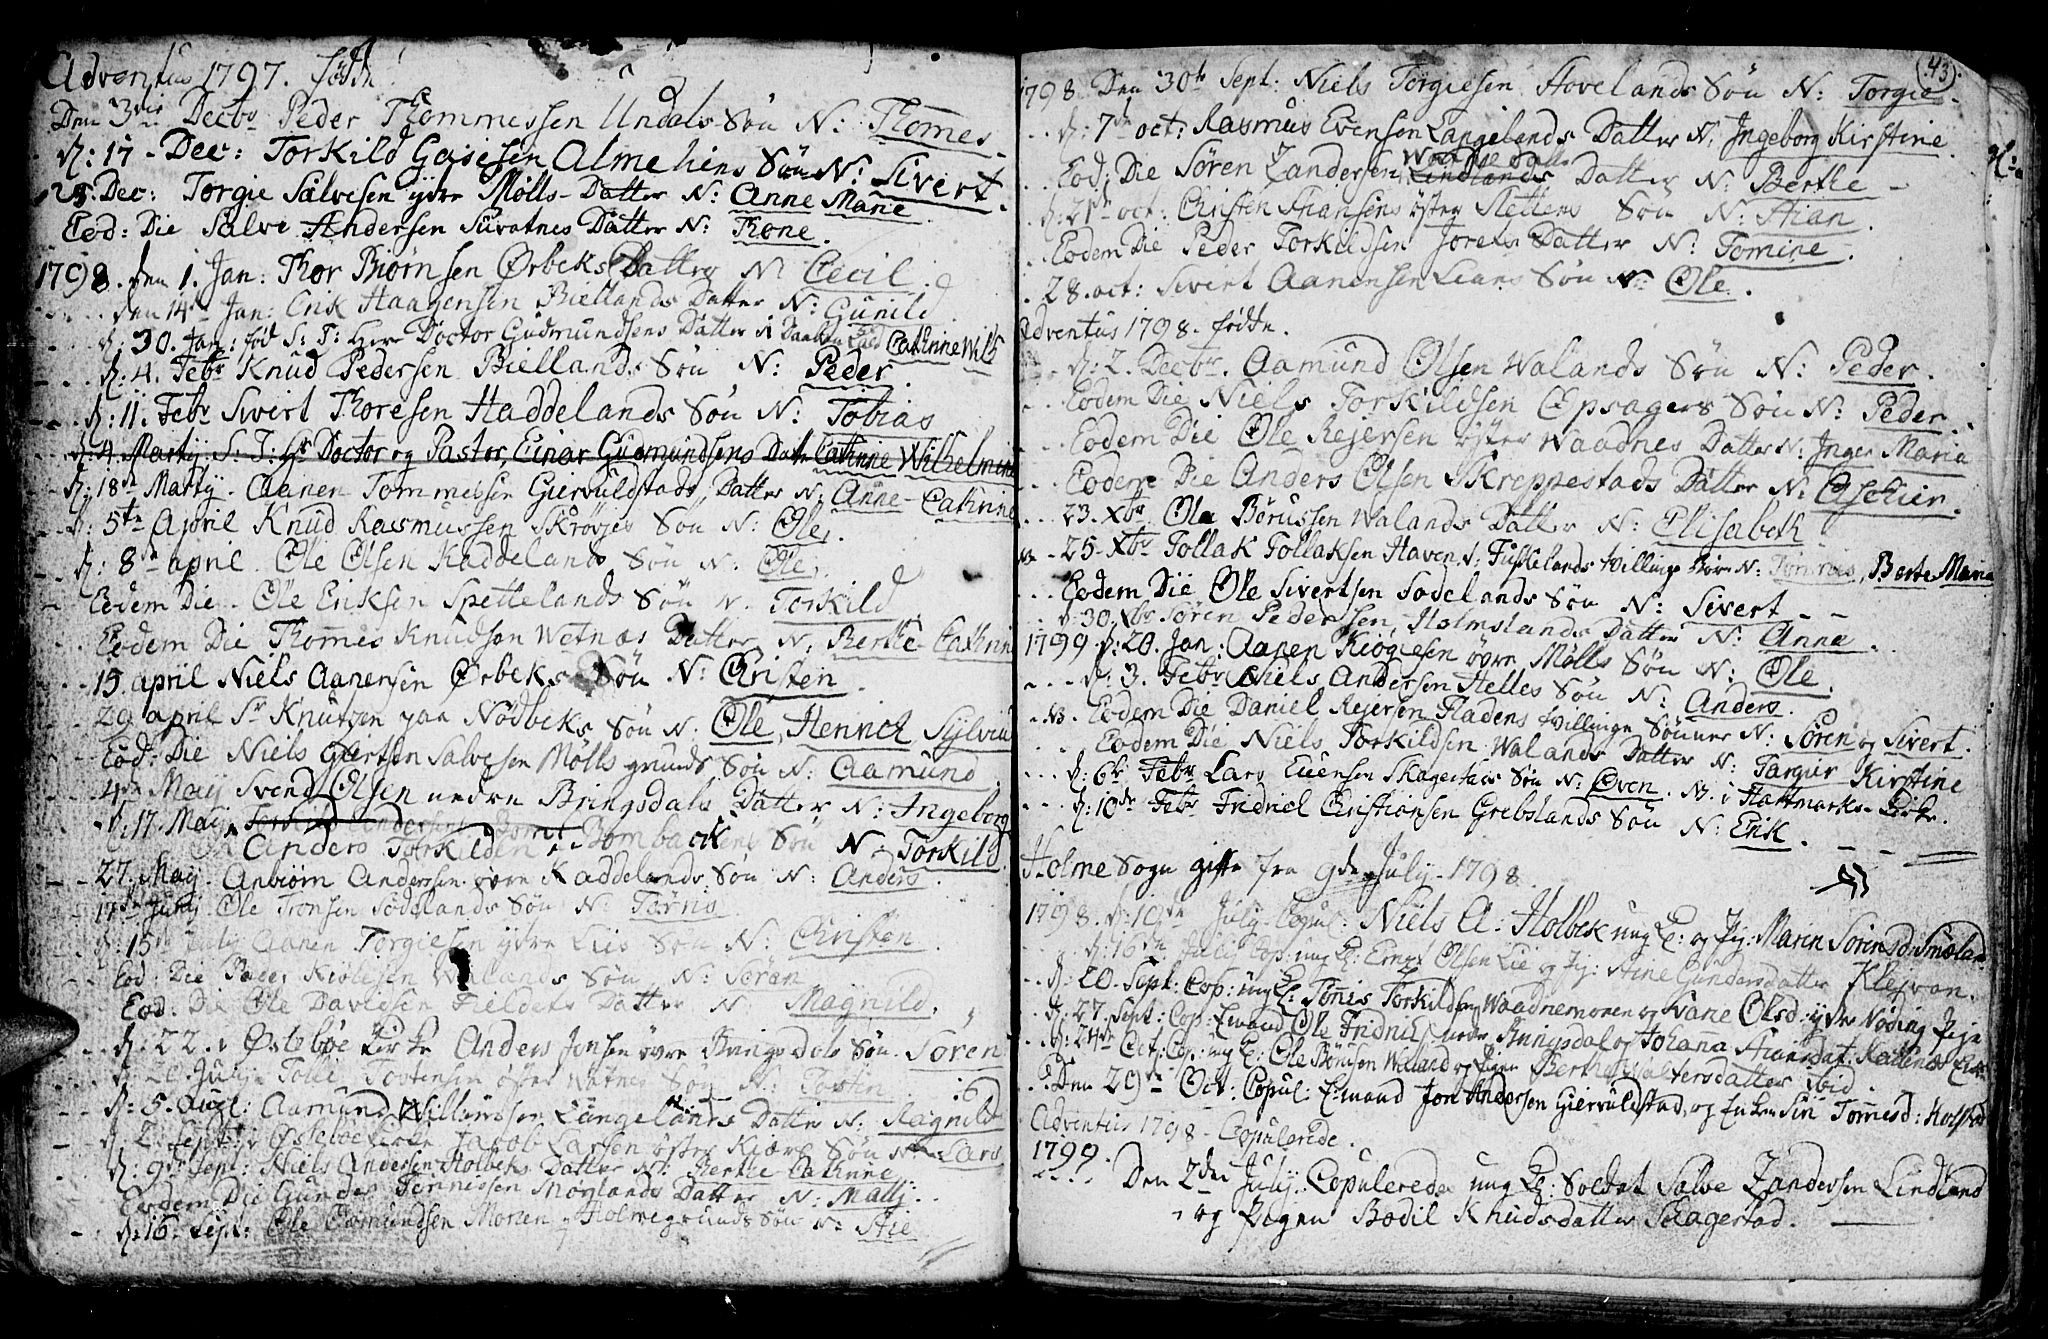 Adventus 1797. födde
Den 3die Decbr Peder Thommessen Undals Søn N: Thomes
d: 17 - Dec: Torkild Gasesen Alme hiens Søn N: Sivert.
25. Dec: Torgie Salvesen ydre Mølls - Datter N: Anne Marie
Eod: Die Salve Andersen Suvatnes Datter N: Thone.
1798. den 1. Jan: Thor Biørnsen Ørbeks Datter N: Cecil.
den 14de Jan: Erik Haagensen Biellands Datter N: Gunild.
d: 30. Jan: fød S: T: Herr Doctor Gudmundsens Datter i Daaben kald Cathrine Wilh
d: 4. Febr Knud Pedersen Biellands Søn N: Peder.
d: 11. Febr Sivert Thoresen Haddelands Søn N: Tobias
d: 4. Martij S: T: Hr Doctor og Pastor Einar Gudmundsens Datter Cathrine Wilhelmine
d: 18de Martij - Aanen Tommessen Giervuldstads, Datter N: Anne - Cathrine
d: 5te April Knud Rasmussen Skrøvjes Søn N: Ole.
d: 8de april. Ole Olsen Kaddelands Søn N: Ole.
Eodem Die - Ole Eriksen Spettelands Søn N. Torkild
Eodem Die Thomes Knudsen Wetnæs Datter N: Berthe - Cathrin
15 april Niels Aanensen Ørbeks - Søn N: Christen.
29 april Sr Knutzen paa Nödbeks Søn N. Ole, Henrich Sylvius
Eod: Die Niels Giertsen Salvesen Mølls grunds Søn N: Aamund
4de Maij Svend Olsen nedre Bringsdals Datter N: Ingeborg
d: 17. Maij Torkild Andersens
Anders Torkildsen i Bombackens Søn N: Torkild
27. Maij. Anbiørn Andersen øvre Kaddelands Søn N: Anders.
17de Junij Ole Tronsen Södelands Søn N: Tørris
d: 15de Julij Aanen Torgiesen ydre Lies Søn N: Christen.
Eod: Die Peder Nielsen Walands Søn N: Søren
Eod: Die Ole Davidsen Fieldets Datter N. Magnild.
d: 22. i Østebøe Kirke Anders Jonsen øvre Bringsdals Søn. Søren
Julij Tolle Tostensen øster Watnes Søn N: Tostin
d: 5. Aug: Aamund Willumsen Langelands Datter N: Ragnild
d: 2. Sept: i Østeböe Kirke Jacob Larsen østre Kiære Søn N: Lars
d: 9de Sept: Niels Andersen Holbeks Datter N: Berthe Cathrine
Eodem Die Gunder Tönnessen Møylands Datter N: Mallj.
d: 16. Sept: Ole Aamundsen Monen, Holmegrunds Søn N: Atie

(43)
1798. Den 30te Sept: Niels Torgiesen Hovelands Søn N: Torgie.
d: 7de oct: Rasmus Evensen Langelands Datter N: Ingeborg Kirstine
Eod: Die Søren Zandersen Lindlands Datter N: Berthe -
d: 21de oct: Christen Fransens øster Slettens Søn N: Stian
Eodem Die Peder Torkildsen Jorets Datter N: Tomine.
28. oct: Sivert Aanensen Leans Søn N: Ole.
Adventus 1798. födte.
d: 2. Decbr. Aamund Olsen Walands Søn N: Peder.
Eodem Die Niels Torkildsen Opsagers Søn N: Peder.
Eodem Die Ole Rejersen øster Waadnes Datter N: Inger Maria
Eodem Die Anders Olsen Skreppestads Datter N: Aschier.
23. Xbr. Ole Børussen Walands Datter N: Elisabeth
25 - Xbr Tollak Tollaksen Haven, i Fiskelands tvillinge Börn N: Tönnes, Berte Maria
Eodem Die Ole Sivertsen Sodelands Søn N: Sivert - -
d: 30. Xbr Søren Pedersen, Holmslands Datter N: Anne
1799. d: 20. Jan: Aanen Kiøgiesen øvre Mølls Søn N: Ole.
d: 3. Febr Niels Andersen Helles Søn N: Anders.
N. Eodem Die Daniel Rejersen Fladens tvillinge Sønner N: Søren og Sivert.
Eodem Die Niels Torkildsen Walands Datter N: Targier Kirstine
d: 6te Febr Lars Evensen Skagestads Søn N: Oven. N. i Haltmarks - Kirke.
d: 10de Febr Fridrich Christiansen Grebslands Søn N: Erik.
Holme Sogn gifte fra 9de Julij - 1798.
1798. d: 10de Julij Copul: Niels A: Holbek ung K: og Pig: Maren Sørensd: Smøland
d: 16de Julij Cop: ung K: Ernst Olsen Lie og Pig: Stine Gundersdatter Kleivan.
d: 20. Sept: Cop: ung K: Tönis Torkildsen Waadnemonen og Svane Olsd: ydre Nöding Pige
d: 27. Sept: Cop: Emand Ole Fridrich nedre Bringsdal og Johana
d: 24de Oct: Cop: ung K: Ole Börusen Waland og Pigen Berthe Salvesdatter ibid.
Den 29de Oct: Copul: E: mand Jon Andersen Giervuldstad, og Enken Siri Tomesd: Holsted
Adventus 1798 - Copulerede.
1799.
Den 2den Julij: Copulerede ung K: Soldat Salve Zandersen Lindland
og Pigen Bodil Knudsdatter Skagestad.